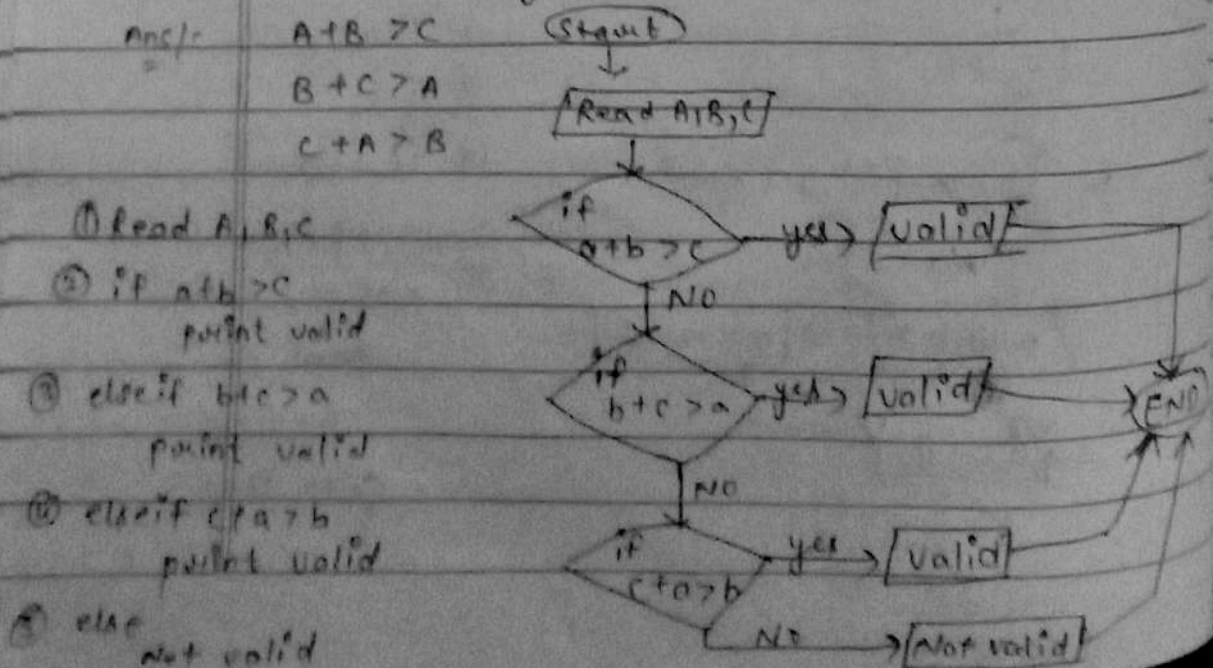 Ans/-
A+B >C
B +C > A
C +A > B
① Read A, B, C
② if a+b >C
print valid
③ else if b+c >a
print valid
④ else if c+a >b
print valid
⑤ else
Not valid
Start
Read A, B, C
if
a+b >c
yes
valid
NO
if
b+c >a
yes
valid
END
NO
if
c+a>b
yes
valid
NO
Not valid